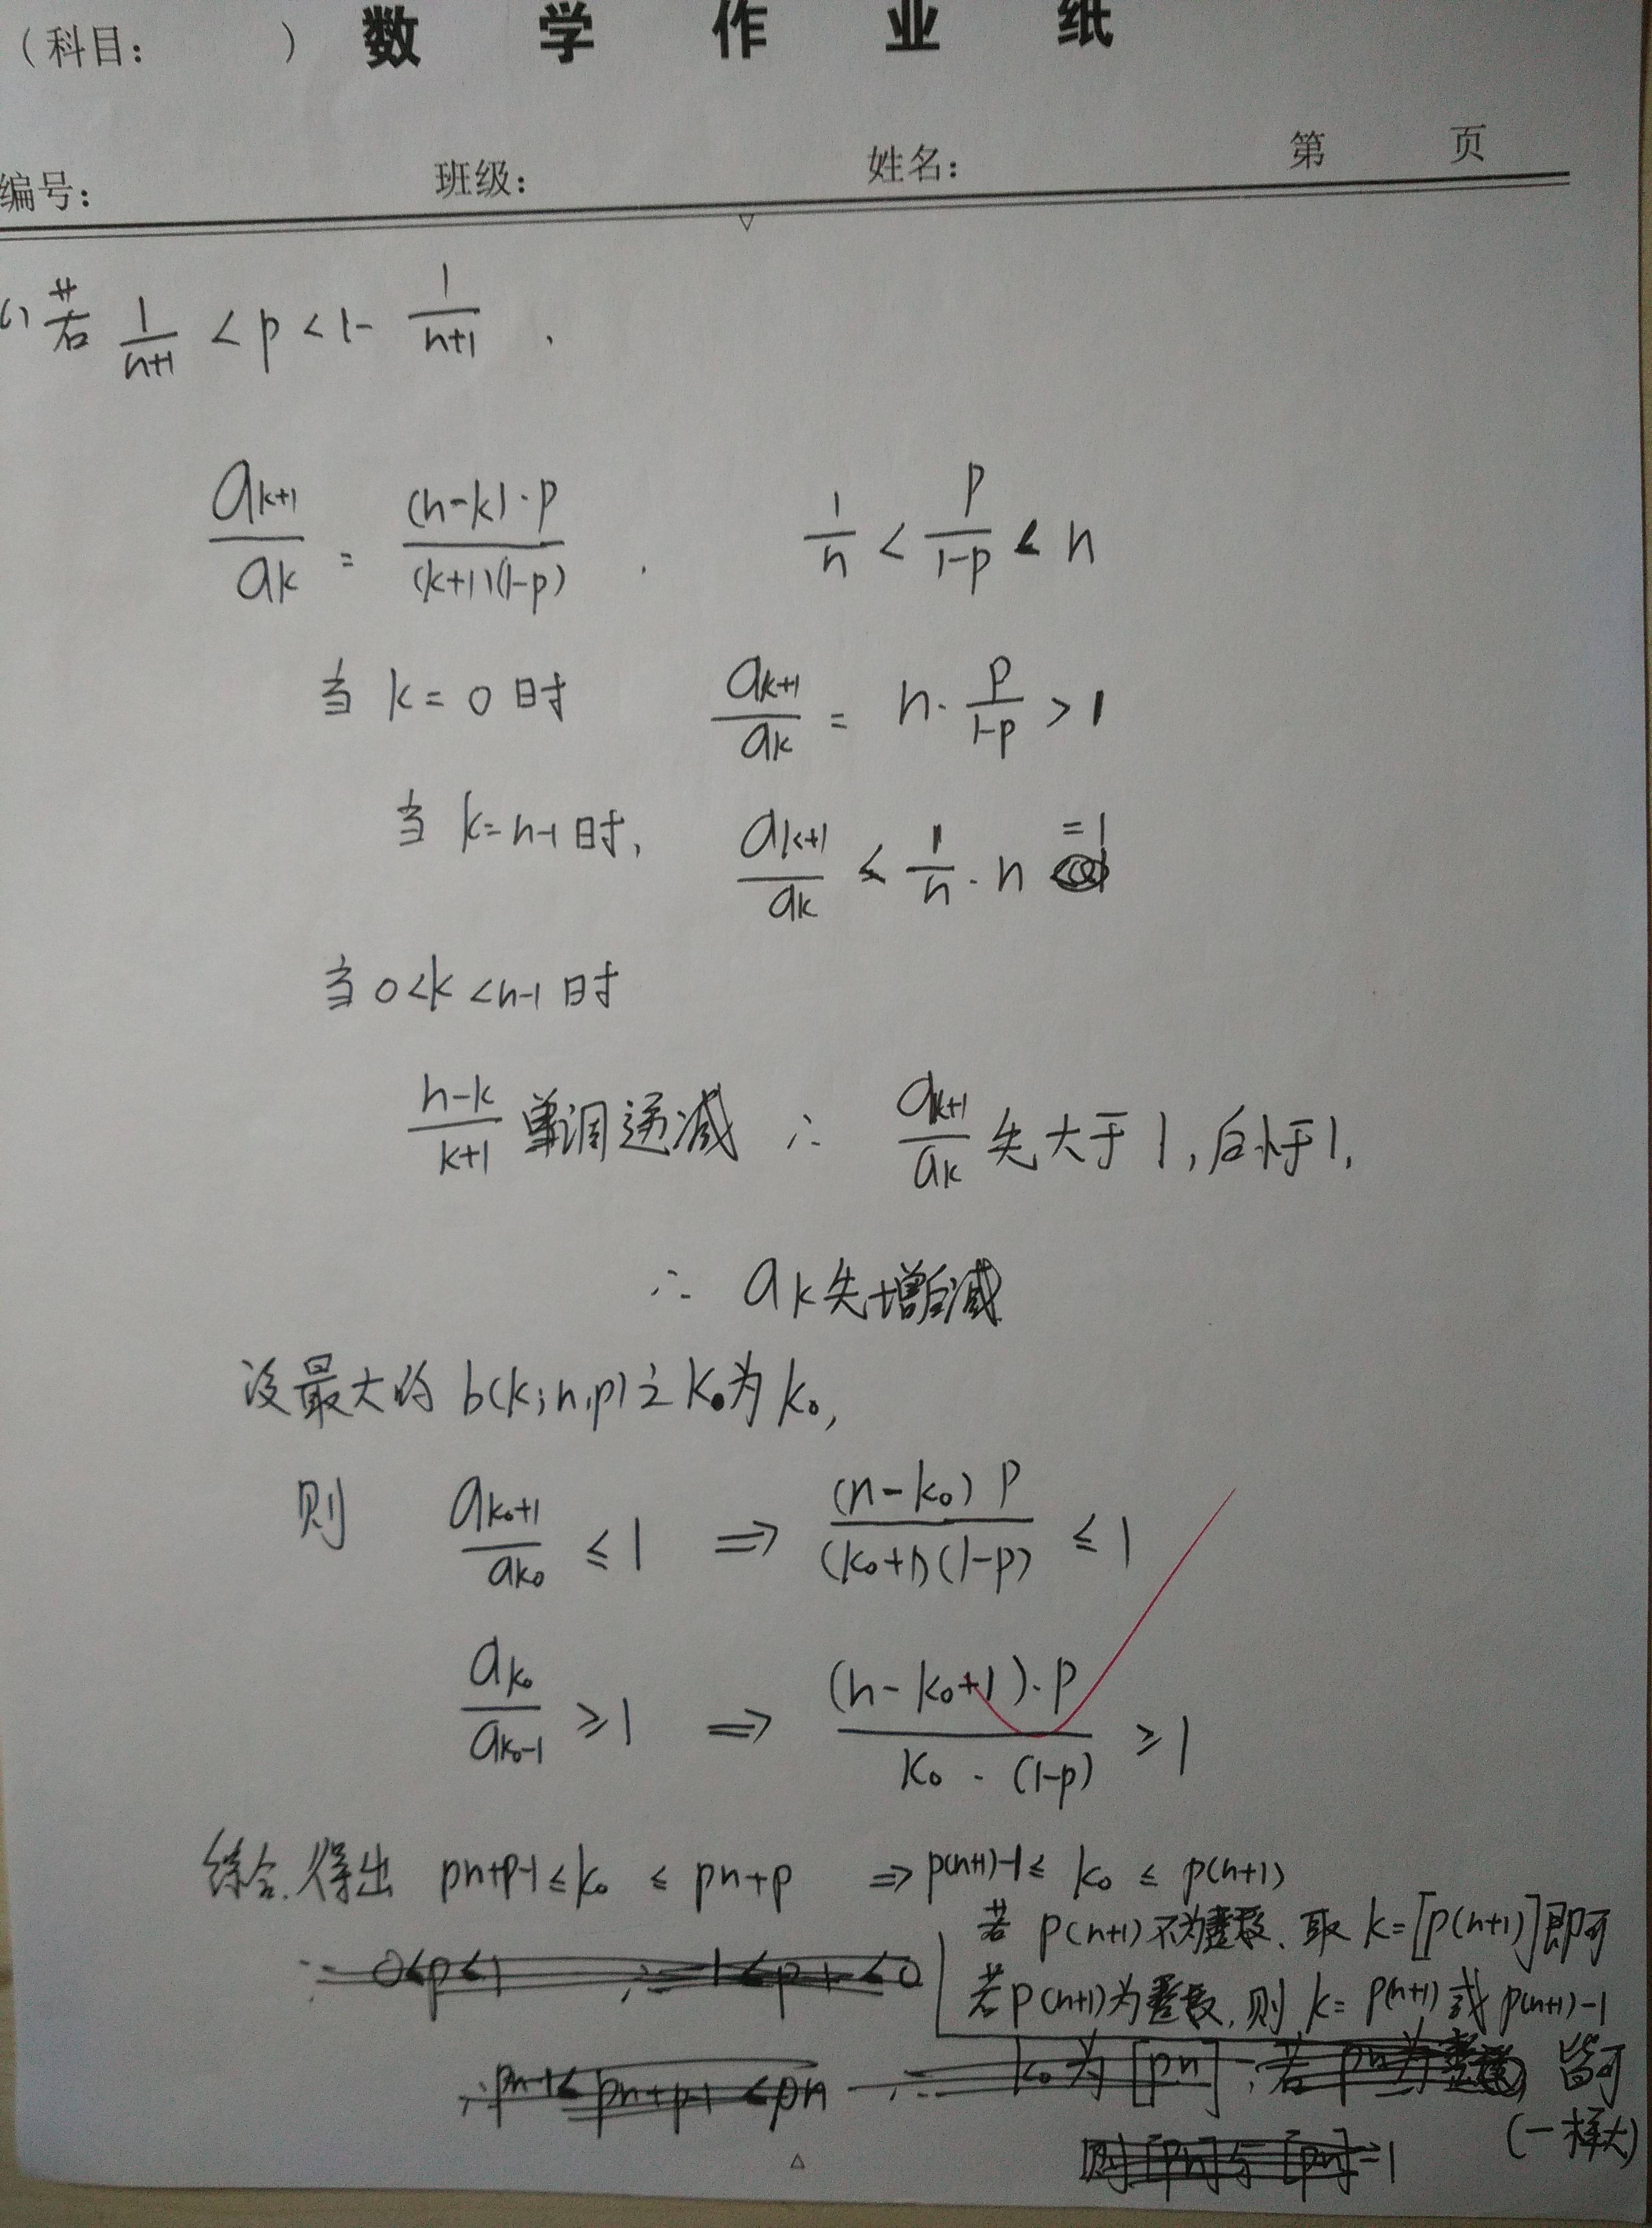 (科目: ) 数 学 作 业 纸
编号: 班级: 姓名: 第 页
(1) 若 1/(n+1) < p < 1- 1/(n+1) .
a_{k+1}/a_k = (n-k)·p/((k+1)(1-p)) . 1/n < p/(1-p) < n
当 k=0 时 a_{k+1}/a_k = n·p/(1-p) > 1
当 k=n-1 时, a_{k+1}/a_k ≤ 1/n · n =1
当 0<k<n-1 时
(n-k)/(k+1) 单调递减 ∴ a_{k+1}/a_k 先大于1,后小于1,
∴ a_k先增后减
设最大的 b(k;n,p)之k₀为k₀,
则 a_{k₀+1}/a_{k₀} ≤ 1 ⇒ (n-k₀)p/((k₀+1)(1-p)) ≤ 1
a_{k₀}/a_{k₀-1} ≥ 1 ⇒ (n-k₀+1)·p/(k₀·(1-p)) ≥ 1
综合.得出 pn+p-1≤k₀ ≤ pn+p ⇒ p(n+1)-1≤ k₀ ≤ p(n+1)
若 p(n+1)不为整数、取 k=[p(n+1)]即可
若p(n+1)为整数,则 k= p(n+1) 或 p(n+1)-1
皆可
(一样大)